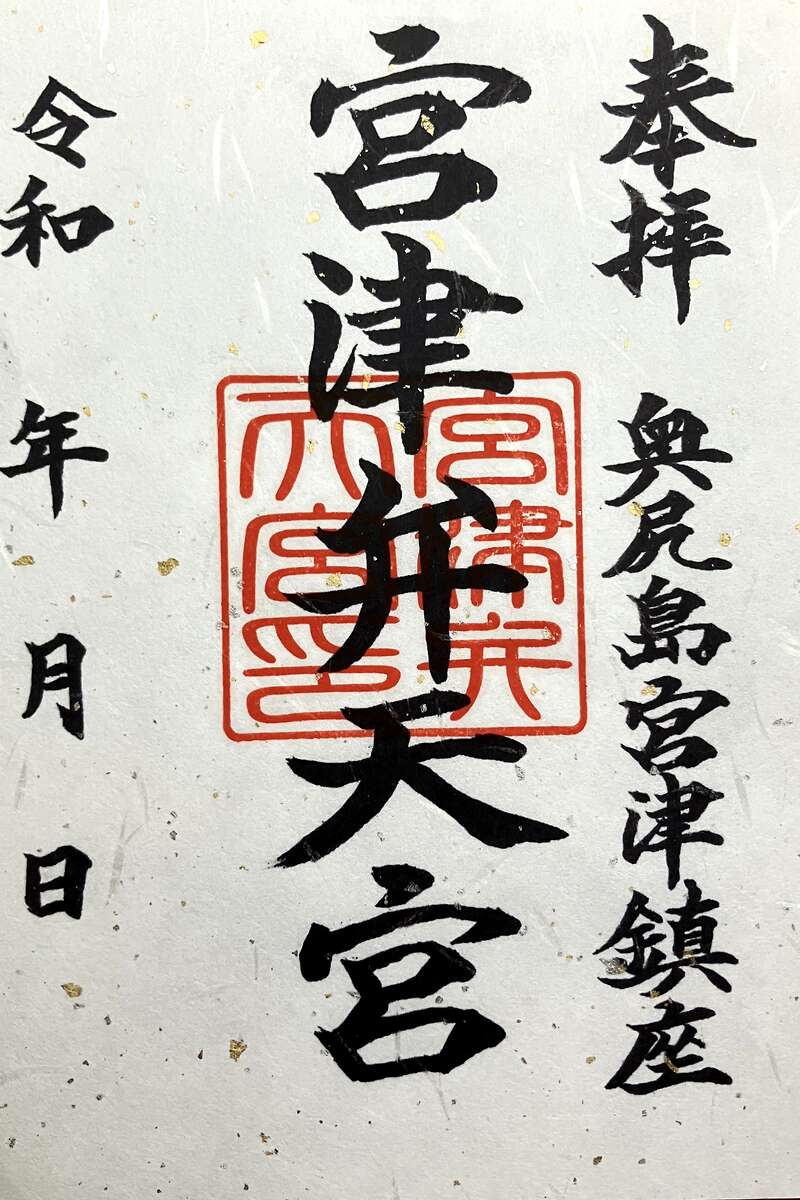 奉拝　奥尻島宮津鎮座
宮津弁天宮
宮津弁
天宮印
令和　年　月　日